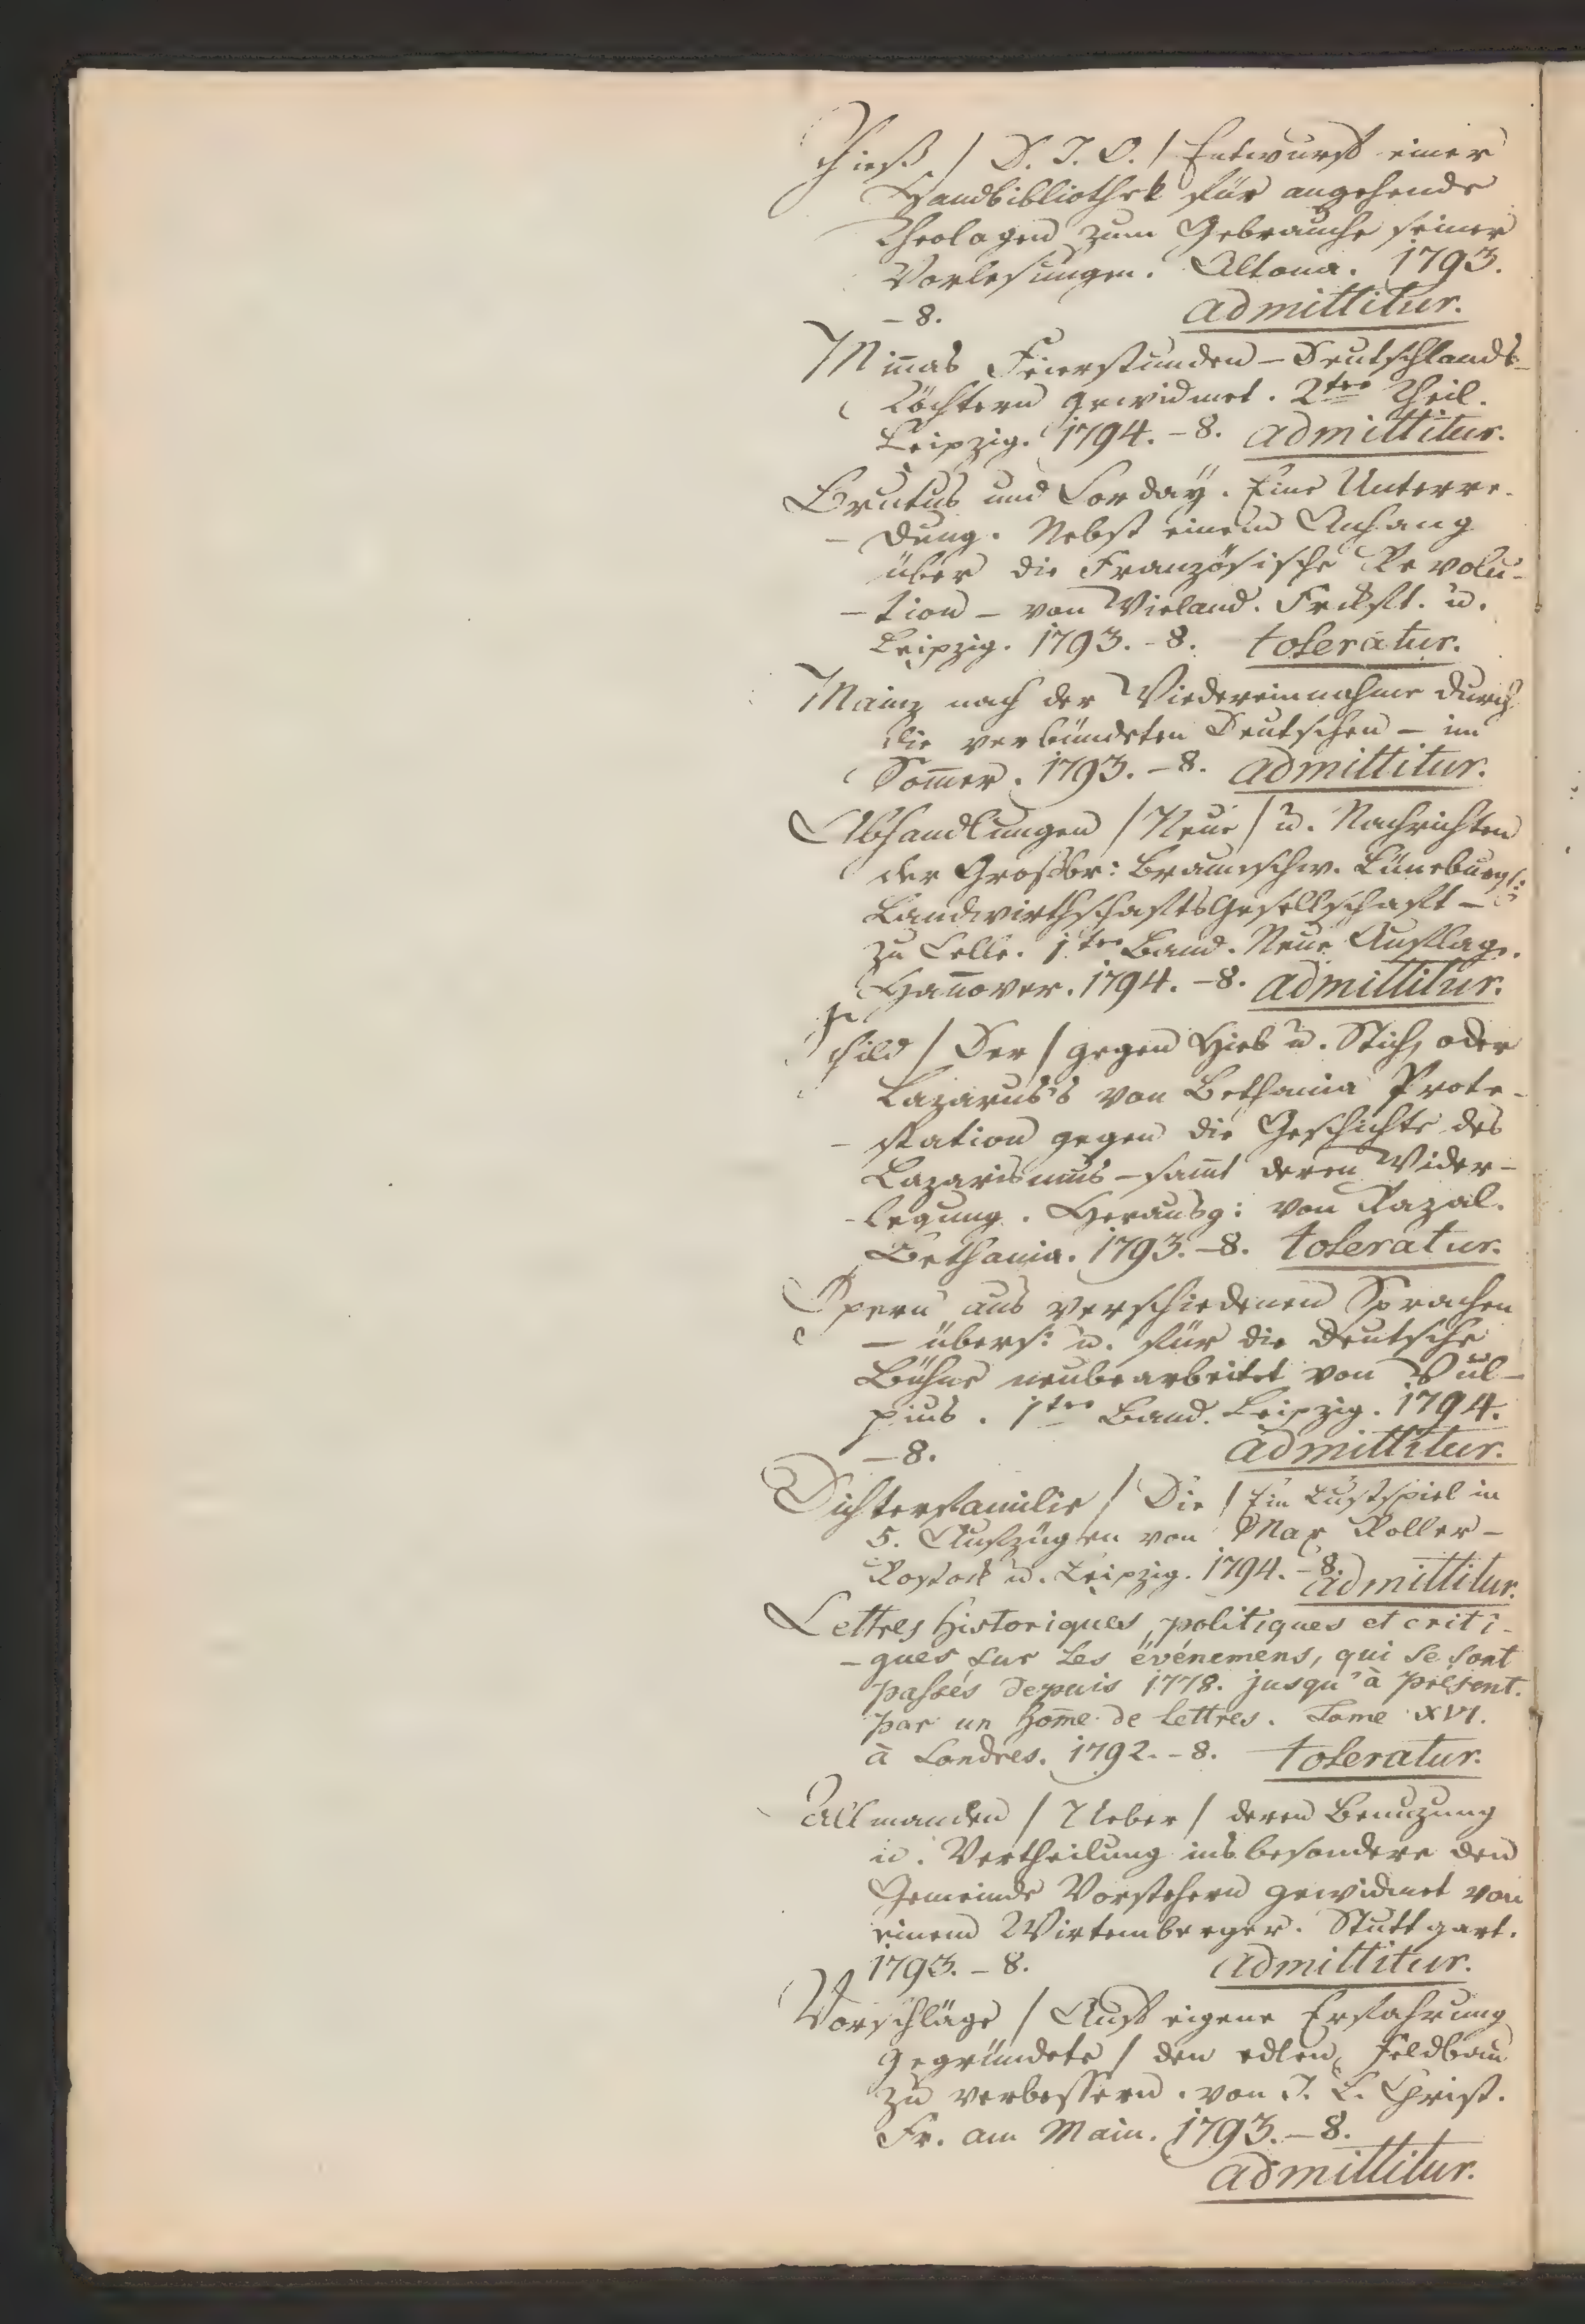 Thieß / D. J. O. / Entwurf einer
Handbibliothek für angehende
Theologen zum Gebrauche seiner
Vorlesungen. Altona. 1793.
– 8. admittitur.
Miñas Feierstunden – Deutschlands
Töchtern gewidmet. 2ter Theil.
Leipzig. 1794. – 8. admittitur.
Brutus und Corday. Eine Unterre-
– dung. Nebst einem Anhang
über die Französische Revolu-
– tion – von Wieland. Frckft. u.
Leipzig. 1793. – 8. toleratur.
Mainz nach der Wiedereinnahme durch
die verbündeten Deutschen – im
Som̄er. 1793. – 8. admittitur.
Abhandlungen / Neue / u. Nachrichten
der Großbr: Braunschw. Lüneburg:
LandwirthschaftsGesellschaft –
zu Celle. 1ter Band. Neue Auflage.
Han̄over. 1794. – 8. admittitur.
Schild / Der / gegen Hieb u. Stich, oder
Lazarus's von Bethania Prote-
– station gegen die Geschichte des
Lazarismus – sam̄t deren Wider-
– legung. Herausg: von Razal.
Bethania. 1793. – 8. toleratur.
Opern aus verschiedenen Sprachen
– übers: u. für die deutsche
Bühne neubearbeitet von Vul-
pius. 1ter Band. Leipzig. 1794.
– 8. admittitur.
Dichterfamilie / Die / Ein Lustspiel in
5. Aufzügen von Max Roller –
Rostock u. Leipzig. 1794. – 8. admittitur.
Lettres historiques, politiques et criti-
– ques sur les événemens, qui se sont
passés depuis 1778. jusqu'à présent.
par un hom̄e de lettres. Tome XVI.
à Londres. 1792. – 8. toleratur.
Allmanden / Ueber / deren Benuzung
u. Vertheilung insbesondere den
Gemeinde Vorstehern gewidmet von
einem Wirtemberger. Stuttgart.
1793. – 8. admittitur.
Vorschläge / Auf eigene Erfahrung
gegründete / den edlen Feldbau
zu verbessern. von J. L. Christ.
Fr. am Main. 1793. – 8.
admittitur.